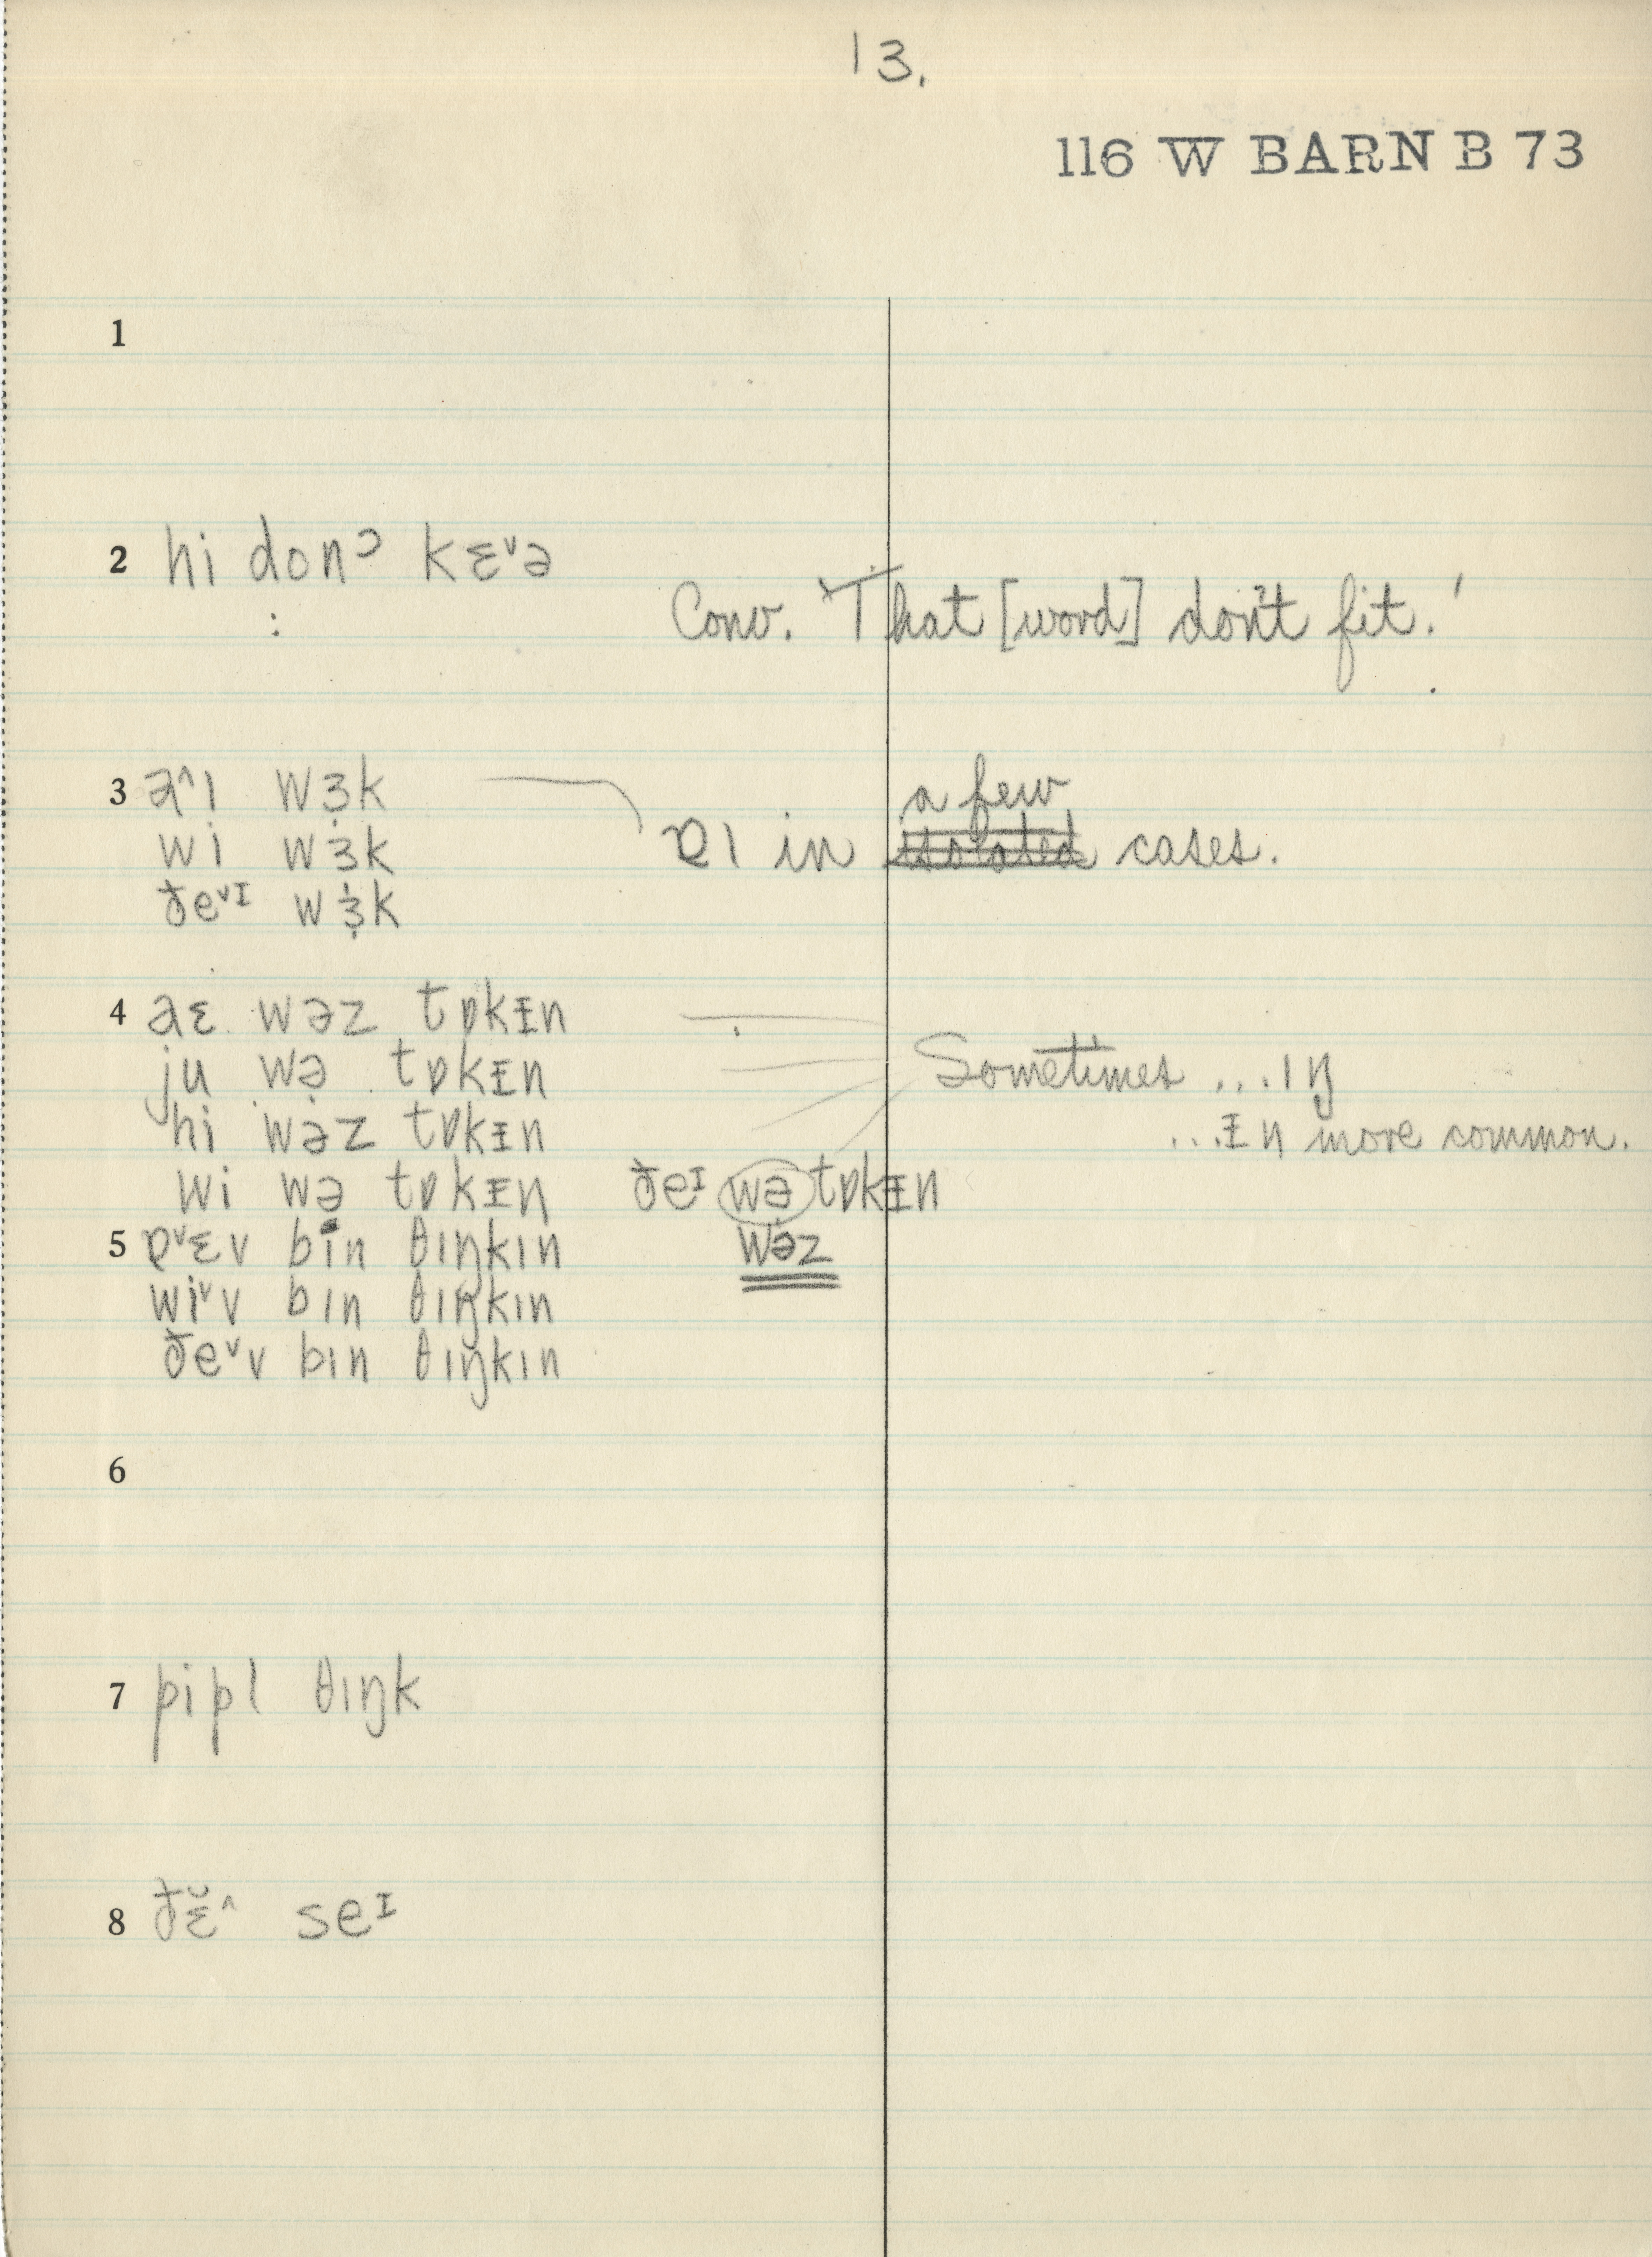 13.
116 W BARN B 73
1
2 hi donᵓ kɛᵛə
:
Conv. 'That [word] don't fit.'
3 a^ɪ wɜ̣k
a few
wi wɜ̣k
ɐɪ in isolated cases.
ðeᵛᴵ wɜ̣k
4 aɛ wəz tɒkɪn
ju wə̣ tɒkɪn
Sometimes ...ɪŋ
hi wəz tɒkɪn
...ɪn more common.
wi wə̣ tɒkɪn ðeᴵ wə̣ tɒkɪn
5 ɐᵛɛv bin θɪŋkɪn wəz
wiᵛv bɪn θɪŋkɪn
ðeᵛv bɪn θɪŋkɪn
6
7 pipl θɪŋk
8 ðɛ̆^ seᴵ